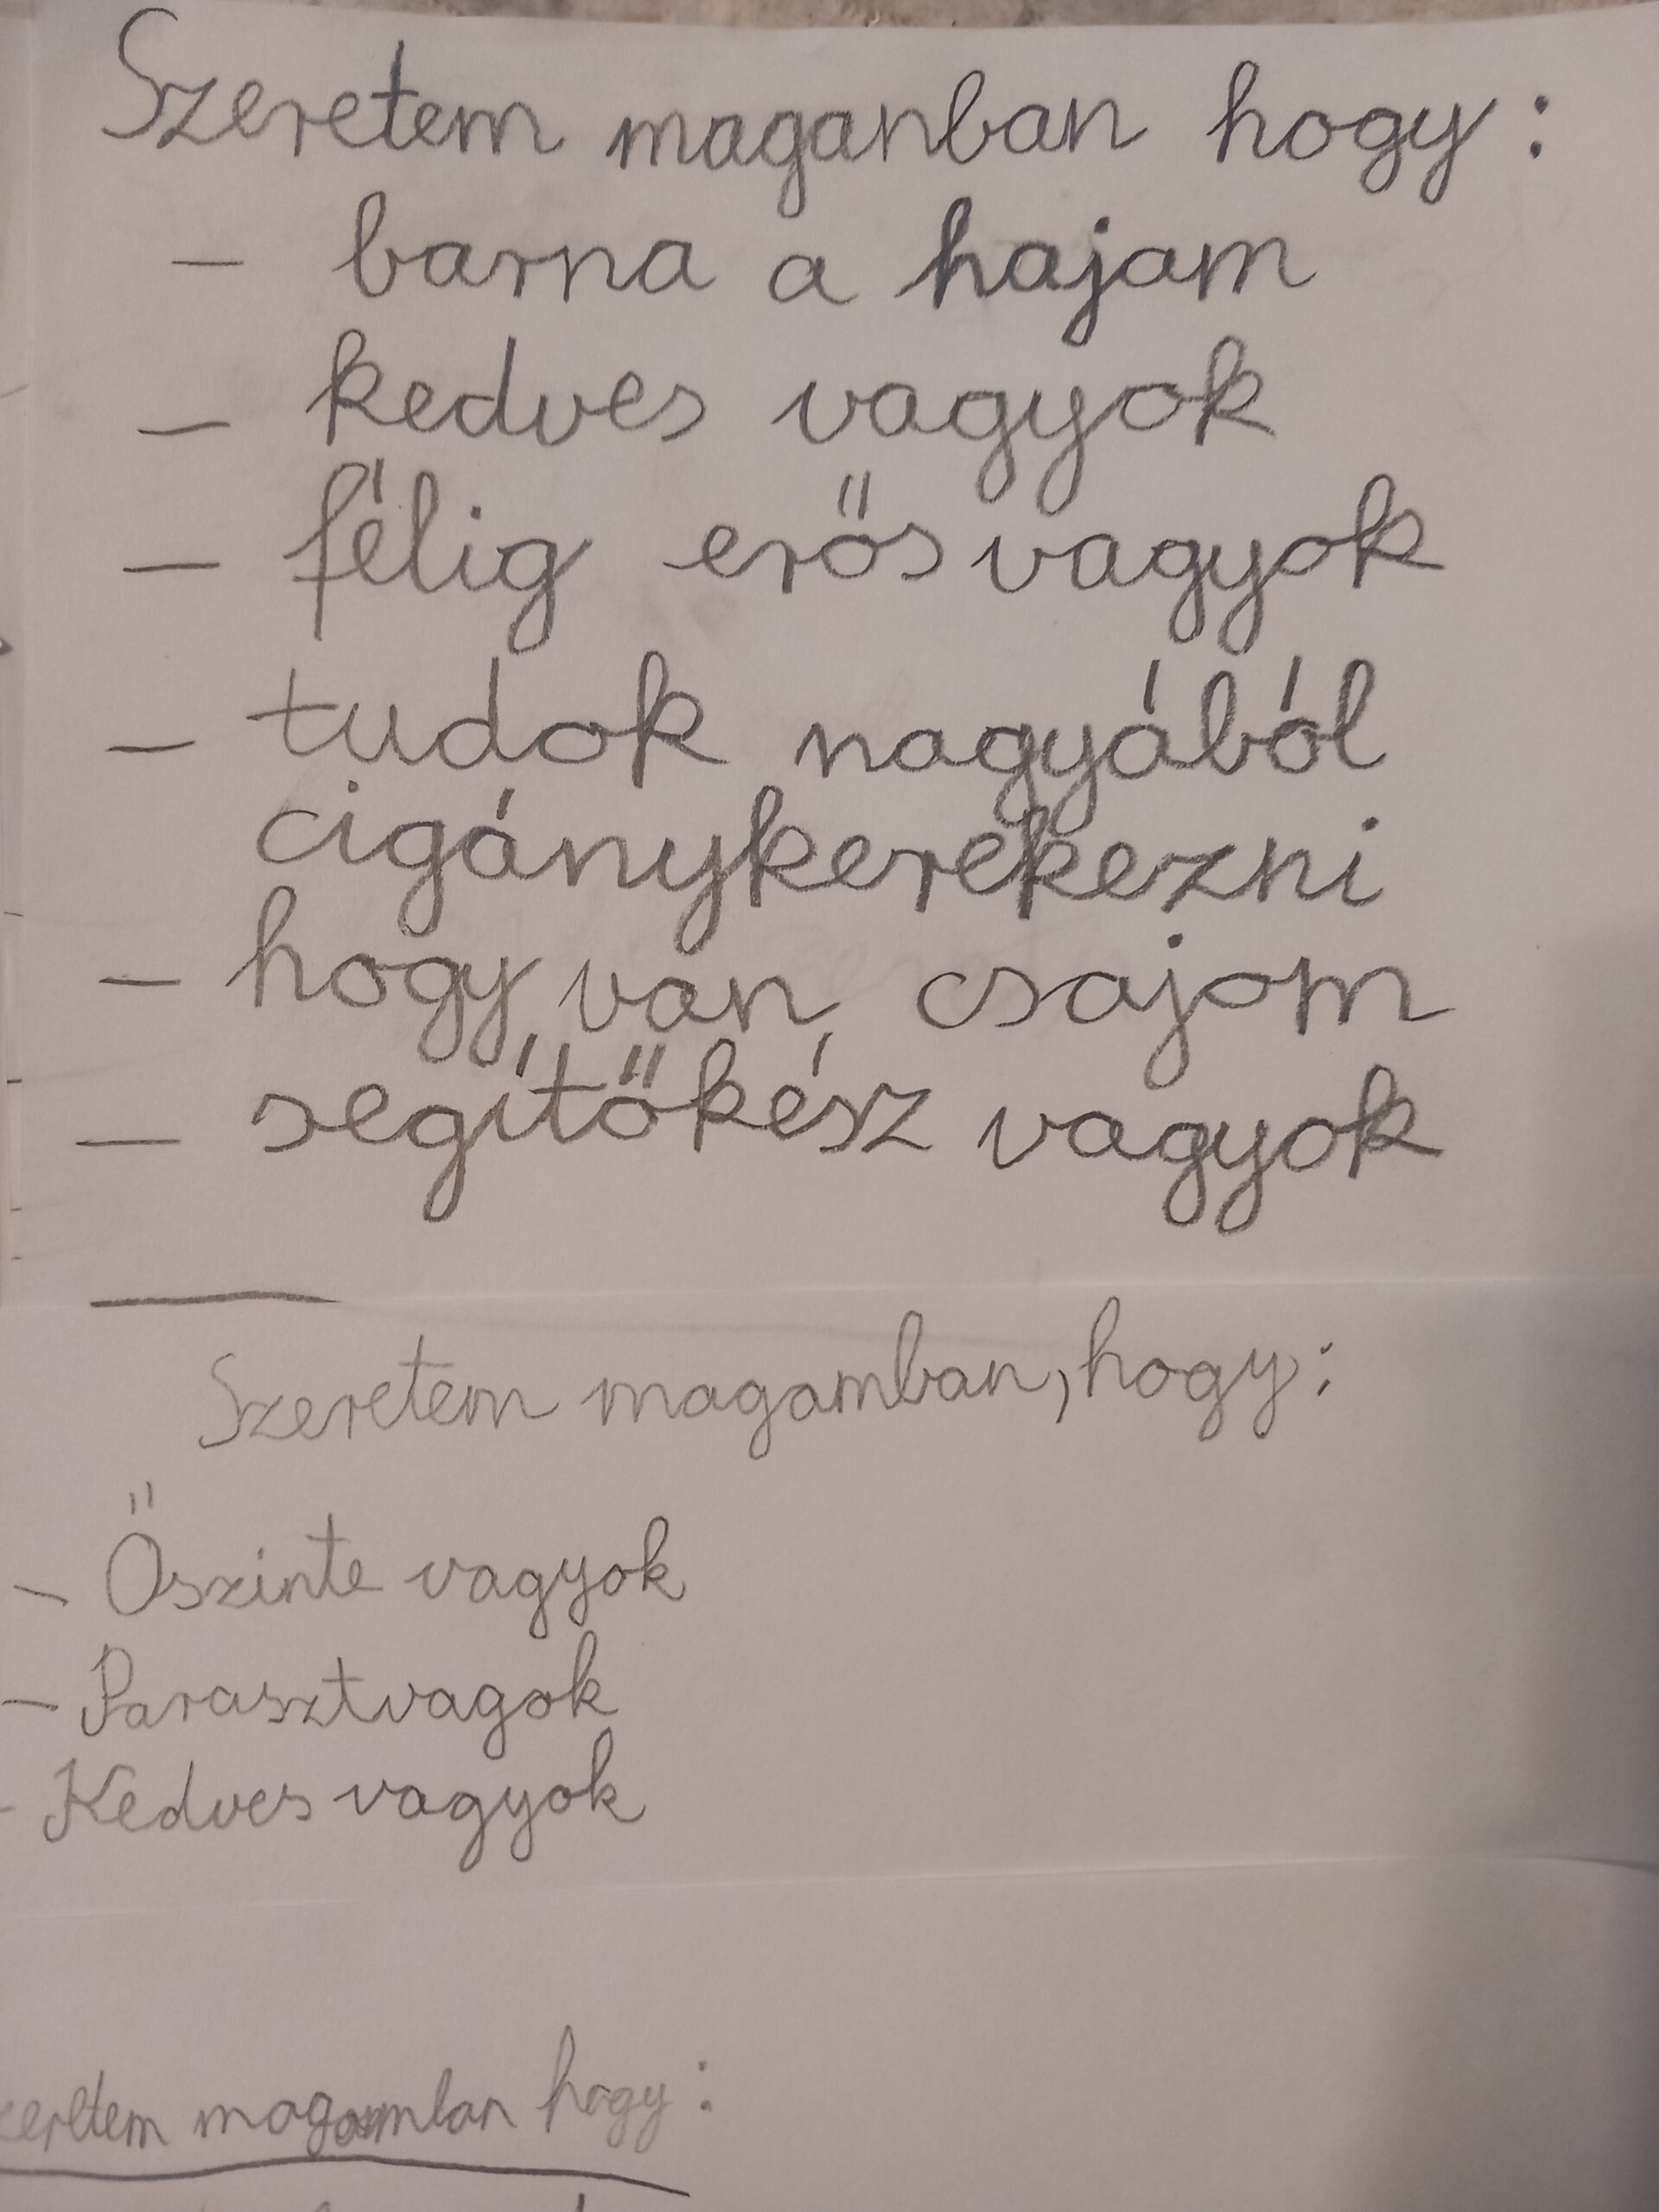 Szeretem maganban hogy:
– barna a hajam
– kedves vagyok
– félig erős vagyok
– tudok nagyából
cigánykerekezni
– hogy van csajom
– segítőkész vagyok
Szeretem magamban, hogy:
– Őszinte vagyok
– Parasztvagok
- Kedves vagyok
zeretem magamban hogy: